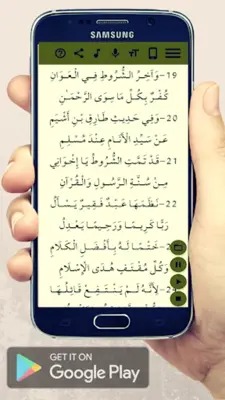 SAMSUNG
19- وَآخِرُ الشُّرُوطِ فِي الْعَوَانِ
كُفْرٌ بِكُلِّ مَا سِوَى الرَّحْمَنِ
20- وَفِي حَدِيثِ طَارِقِ بْنِ أَشْيَمِ
عَنْ سَيِّدِ الْأَنَامِ عِنْدَ مُسْلِمِ
21- قَدْ تَمَّتِ الشُّرُوطُ يَا إِخْوَانِي
مِنْ سُنَّةِ الرَّسُولِ وَالْقُرْآنِ
22- نَظَمَهَا عَبْدٌ فَقِيرٌ يَسْأَلُ
رَبًّا كَرِيمًا وَرَحِيمًا يَعْدِلُ
23- خَتْمًا لَهُ بِأَفْضَلِ الْكَلَامِ
وَكُلِّ مُقْتَفٍ هُدَى الْإِسْلَامِ
24- لِأَنَّهُ لَمْ يَنْتَفِعْ قَائِلُهَا
GET IT ON
Google Play